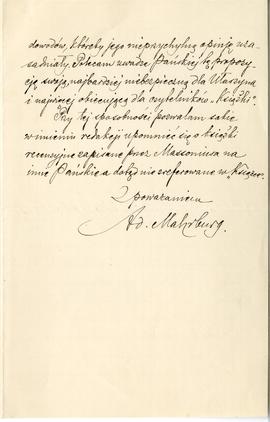 dowodów, któreby jego nieprzychylną opinję uza-
sadniały. Polecam uwadze Pańskiej tę propozy-
cję swoją, najbardziej niebezpieczną dla Utaszyna
i najwięcej obiecującą dla czytelników „Książki".
Przy tej sposobności pozwalam sobie
w imieniu redakcji upomnieć się o książki
recenzyjne zapisane przez Massoniusa na
imię Pańskie a dotąd nie zreferowane w „Książce".
Z poważaniem
Ad. Mahrburg.